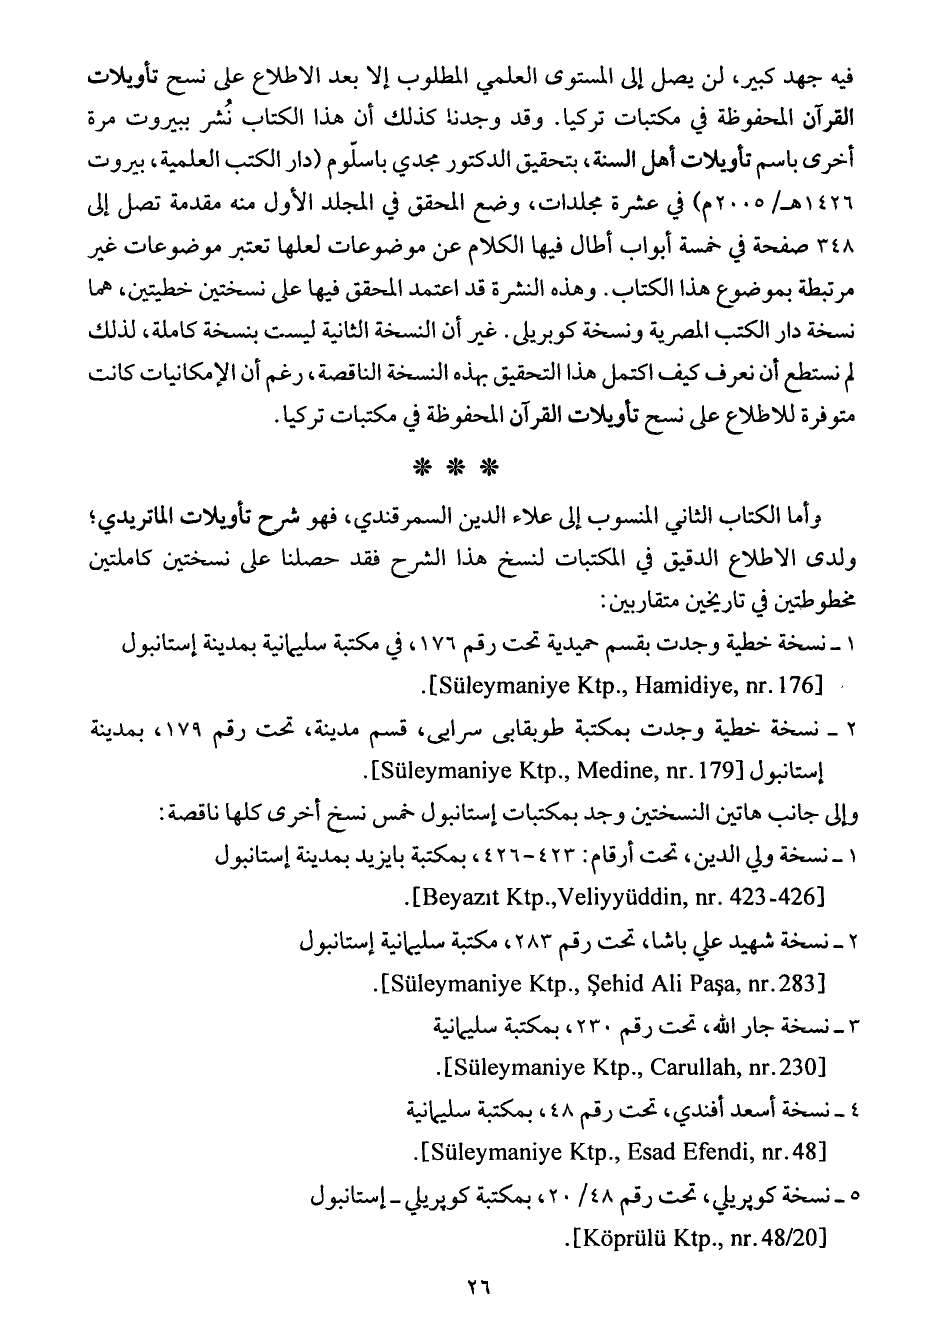 فيه جهد كبير، لن يصل إلى المستوى العلمي المطلوب إلا بعد الاطلاع على نسخ تأويلات
القرآن المحفوظة في مكتبات تركيا. وقد وجدنا كذلك أن هذا الكتاب نُشر ببيروت مرة
أخرى باسم تأويلات أهل السنة، بتحقيق الدكتور مجدي باسلّوم (دار الكتب العلمية، بيروت
١٤٢٦هـ/ ٢٠٠٥م) في عشرة مجلدات، وضع المحقق في المجلد الأول منه مقدمة تصل إلى
٣٤٨ صفحة في خمسة أبواب أطال فيها الكلام عن موضوعات لعلها تعتبر موضوعات غير
مرتبطة بموضوع هذا الكتاب. وهذه النشرة قد اعتمد المحقق فيها على نسختين خطيتين، هما
نسخة دار الكتب المصرية ونسخة كوبريلي. غير أن النسخة الثانية ليست بنسخة كاملة، لذلك
لم نستطع أن نعرف كيف اكتمل هذا التحقيق بهذه النسخة الناقصة، رغم أن الإمكانيات كانت
متوفرة للاطلاع على نسخ تأويلات القرآن المحفوظة في مكتبات تركيا.
* * *
وأما الكتاب الثاني المنسوب إلى علاء الدين السمرقندي، فهو شرح تأويلات الماتريدي؛
ولدى الاطلاع الدقيق في المكتبات لنسخ هذا الشرح فقد حصلنا على نسختين كاملتين
مخطوطتين في تاريخين متقاربين:
١ - نسخة خطية وجدت بقسم حميدية تحت رقم ١٧٦، في مكتبة سليمانية بمدينة إستانبول
[Süleymaniye Ktp., Hamidiye, nr. 176].
٢ - نسخة خطية وجدت بمكتبة طوبقابى سرايى، قسم مدينة، تحت رقم ١٧٩، بمدينة
إستانبول [Süleymaniye Ktp., Medine, nr. 179].
وإلى جانب هاتين النسختين وجد بمكتبات إستانبول خمس نسخ أخرى كلها ناقصة:
١ - نسخة ولي الدين، تحت أرقام: ٤٢٣-٤٢٦، بمكتبة بايزيد بمدينة إستانبول
[Beyazıt Ktp.,Veliyyüddin, nr. 423-426].
٢ - نسخة شهيد علي باشا، تحت رقم ٢٨٣، مكتبة سليمانية إستانبول
[Süleymaniye Ktp., Şehid Ali Paşa, nr.283].
٣ - نسخة جار الله، تحت رقم ٢٣٠، بمكتبة سليمانية
[Süleymaniye Ktp., Carullah, nr.230].
٤ - نسخة أسعد أفندي، تحت رقم ٤٨، بمكتبة سليمانية
[Süleymaniye Ktp., Esad Efendi, nr.48].
٥ - نسخة كوپريلي، تحت رقم ٤٨/ ٢٠، بمكتبة كوپريلي - إستانبول
[Köprülü Ktp., nr.48/20].
٢٦